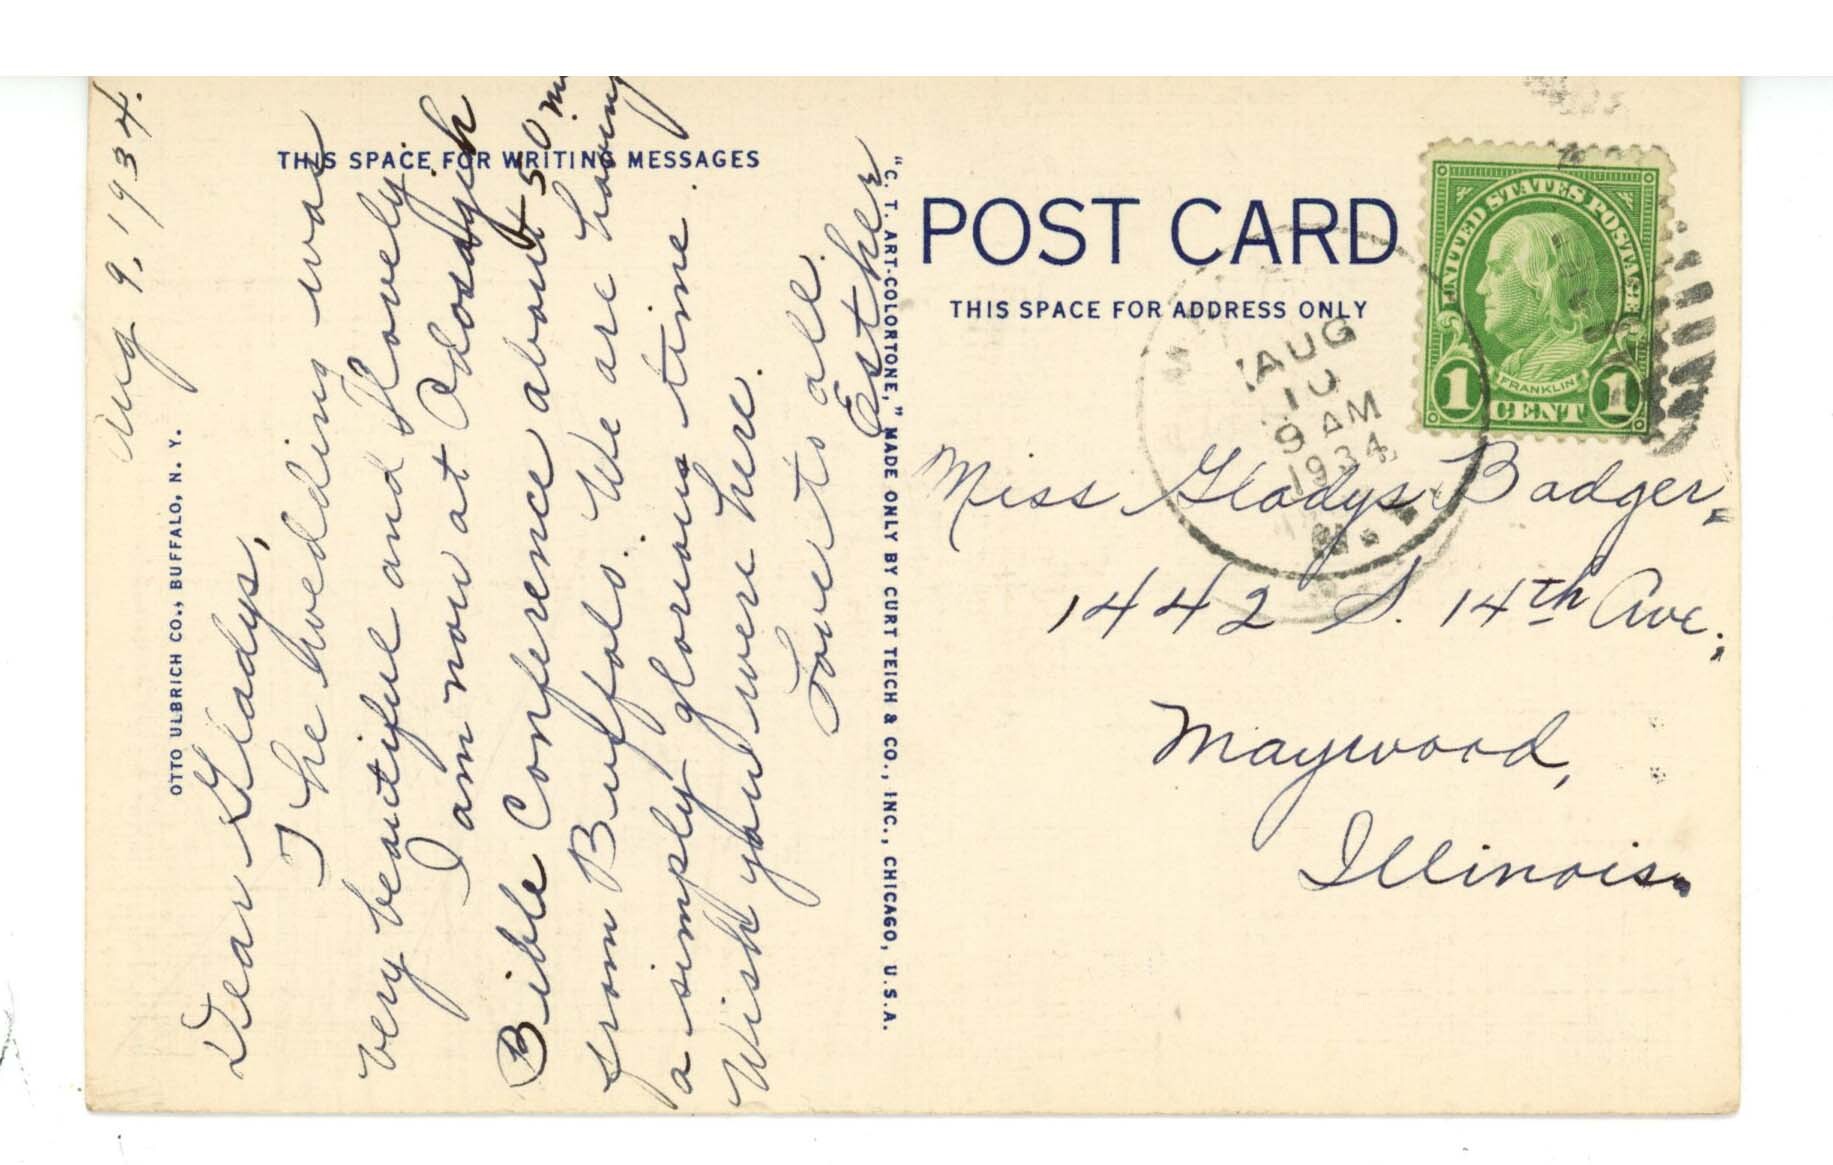 Aug 9, 1934.
Dear Gladys,
The wedding was
very beautiful and lovely.
I am now at
Bible Conference about 50 m
from Buffalo. We are having
a simply glorious time.
Wish you were here.
Love to all.
Esther
THIS SPACE FOR WRITING MESSAGES
OTTO ULBRICH CO., BUFFALO, N. Y.
"C. T. ART-COLORTONE," MADE ONLY BY CURT TEICH & CO., INC., CHICAGO, U.S.A.
POST CARD
THIS SPACE FOR ADDRESS ONLY
AUG
10
9 AM
1934
N.
UNITED STATES POSTAGE
FRANKLIN
1 CENT 1
Miss Gladys Badger,
1442 S. 14th Ave.,
Maywood,
Illinois.